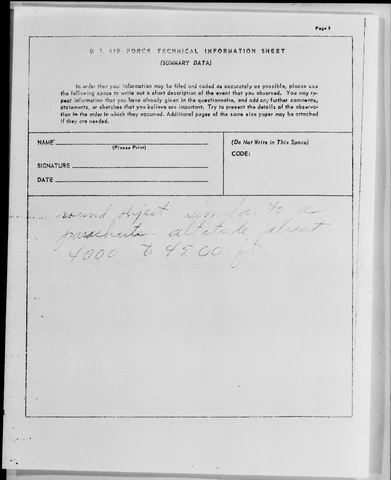 Page 9
U. S. AIR FORCE TECHNICAL INFORMATION SHEET
(SUMMARY DATA)
In order that your information may be filed and coded as accurately as possible, please use
the following space to write out a short description of the event that you observed. You may re-
peat information that you have already given in the questionnaire, and add any further comments,
statements, or sketches that you believe are important. Try to present the details of the observa-
tion in the order in which they occurred. Additional pages of the same size paper may be attached
if they are needed.
NAME
(Please Print)
SIGNATURE
DATE
(Do Not Write in This Space)
CODE:
round object similar to a
parachute altitude about
4000 to 4500 ft.